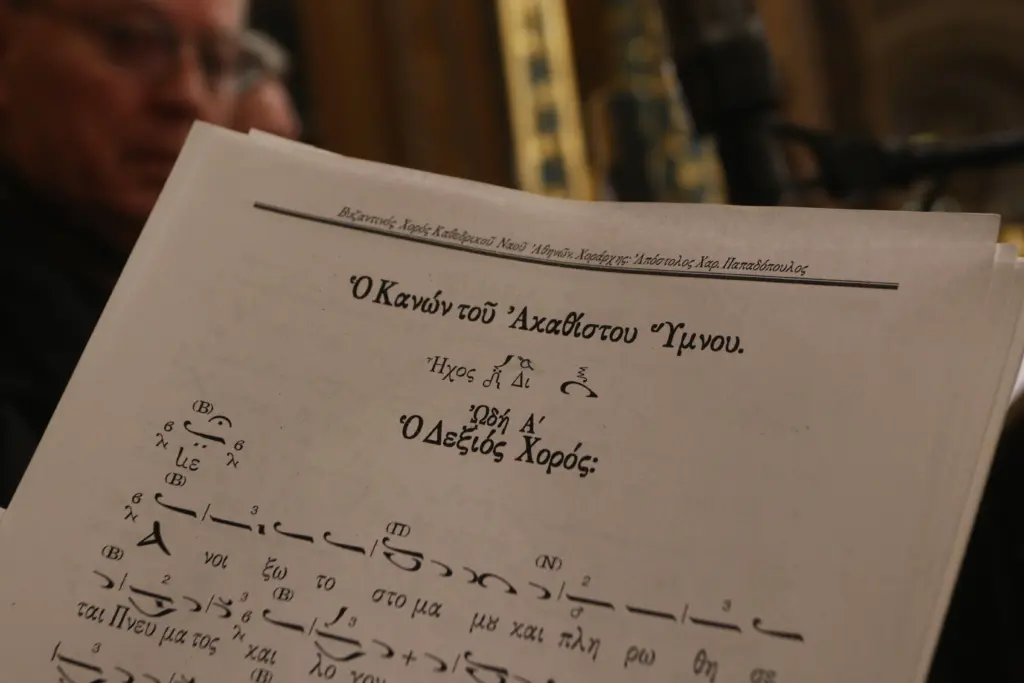 Βυζαντινός Χορός Καθεδρικοῦ Ναοῦ Ἀθηνῶν. Χοράρχης: Ἀπόστολος Χαρ. Παπαδόπουλος
Ὁ Κανών τοῦ Ἀκαθίστου Ὕμνου.
Ἦχος Δι
ᾨδή Α΄
Ὁ Δεξιός Χορός:
(Β)
(Β)
3 (Π) (Ν) 2 3
Α νοι ξω το στο μα μȣ και πλη ρω θη σε
(Β) 2 3 (Β) 3
ται Πνευ μα τος και λο γον
3 (Β)